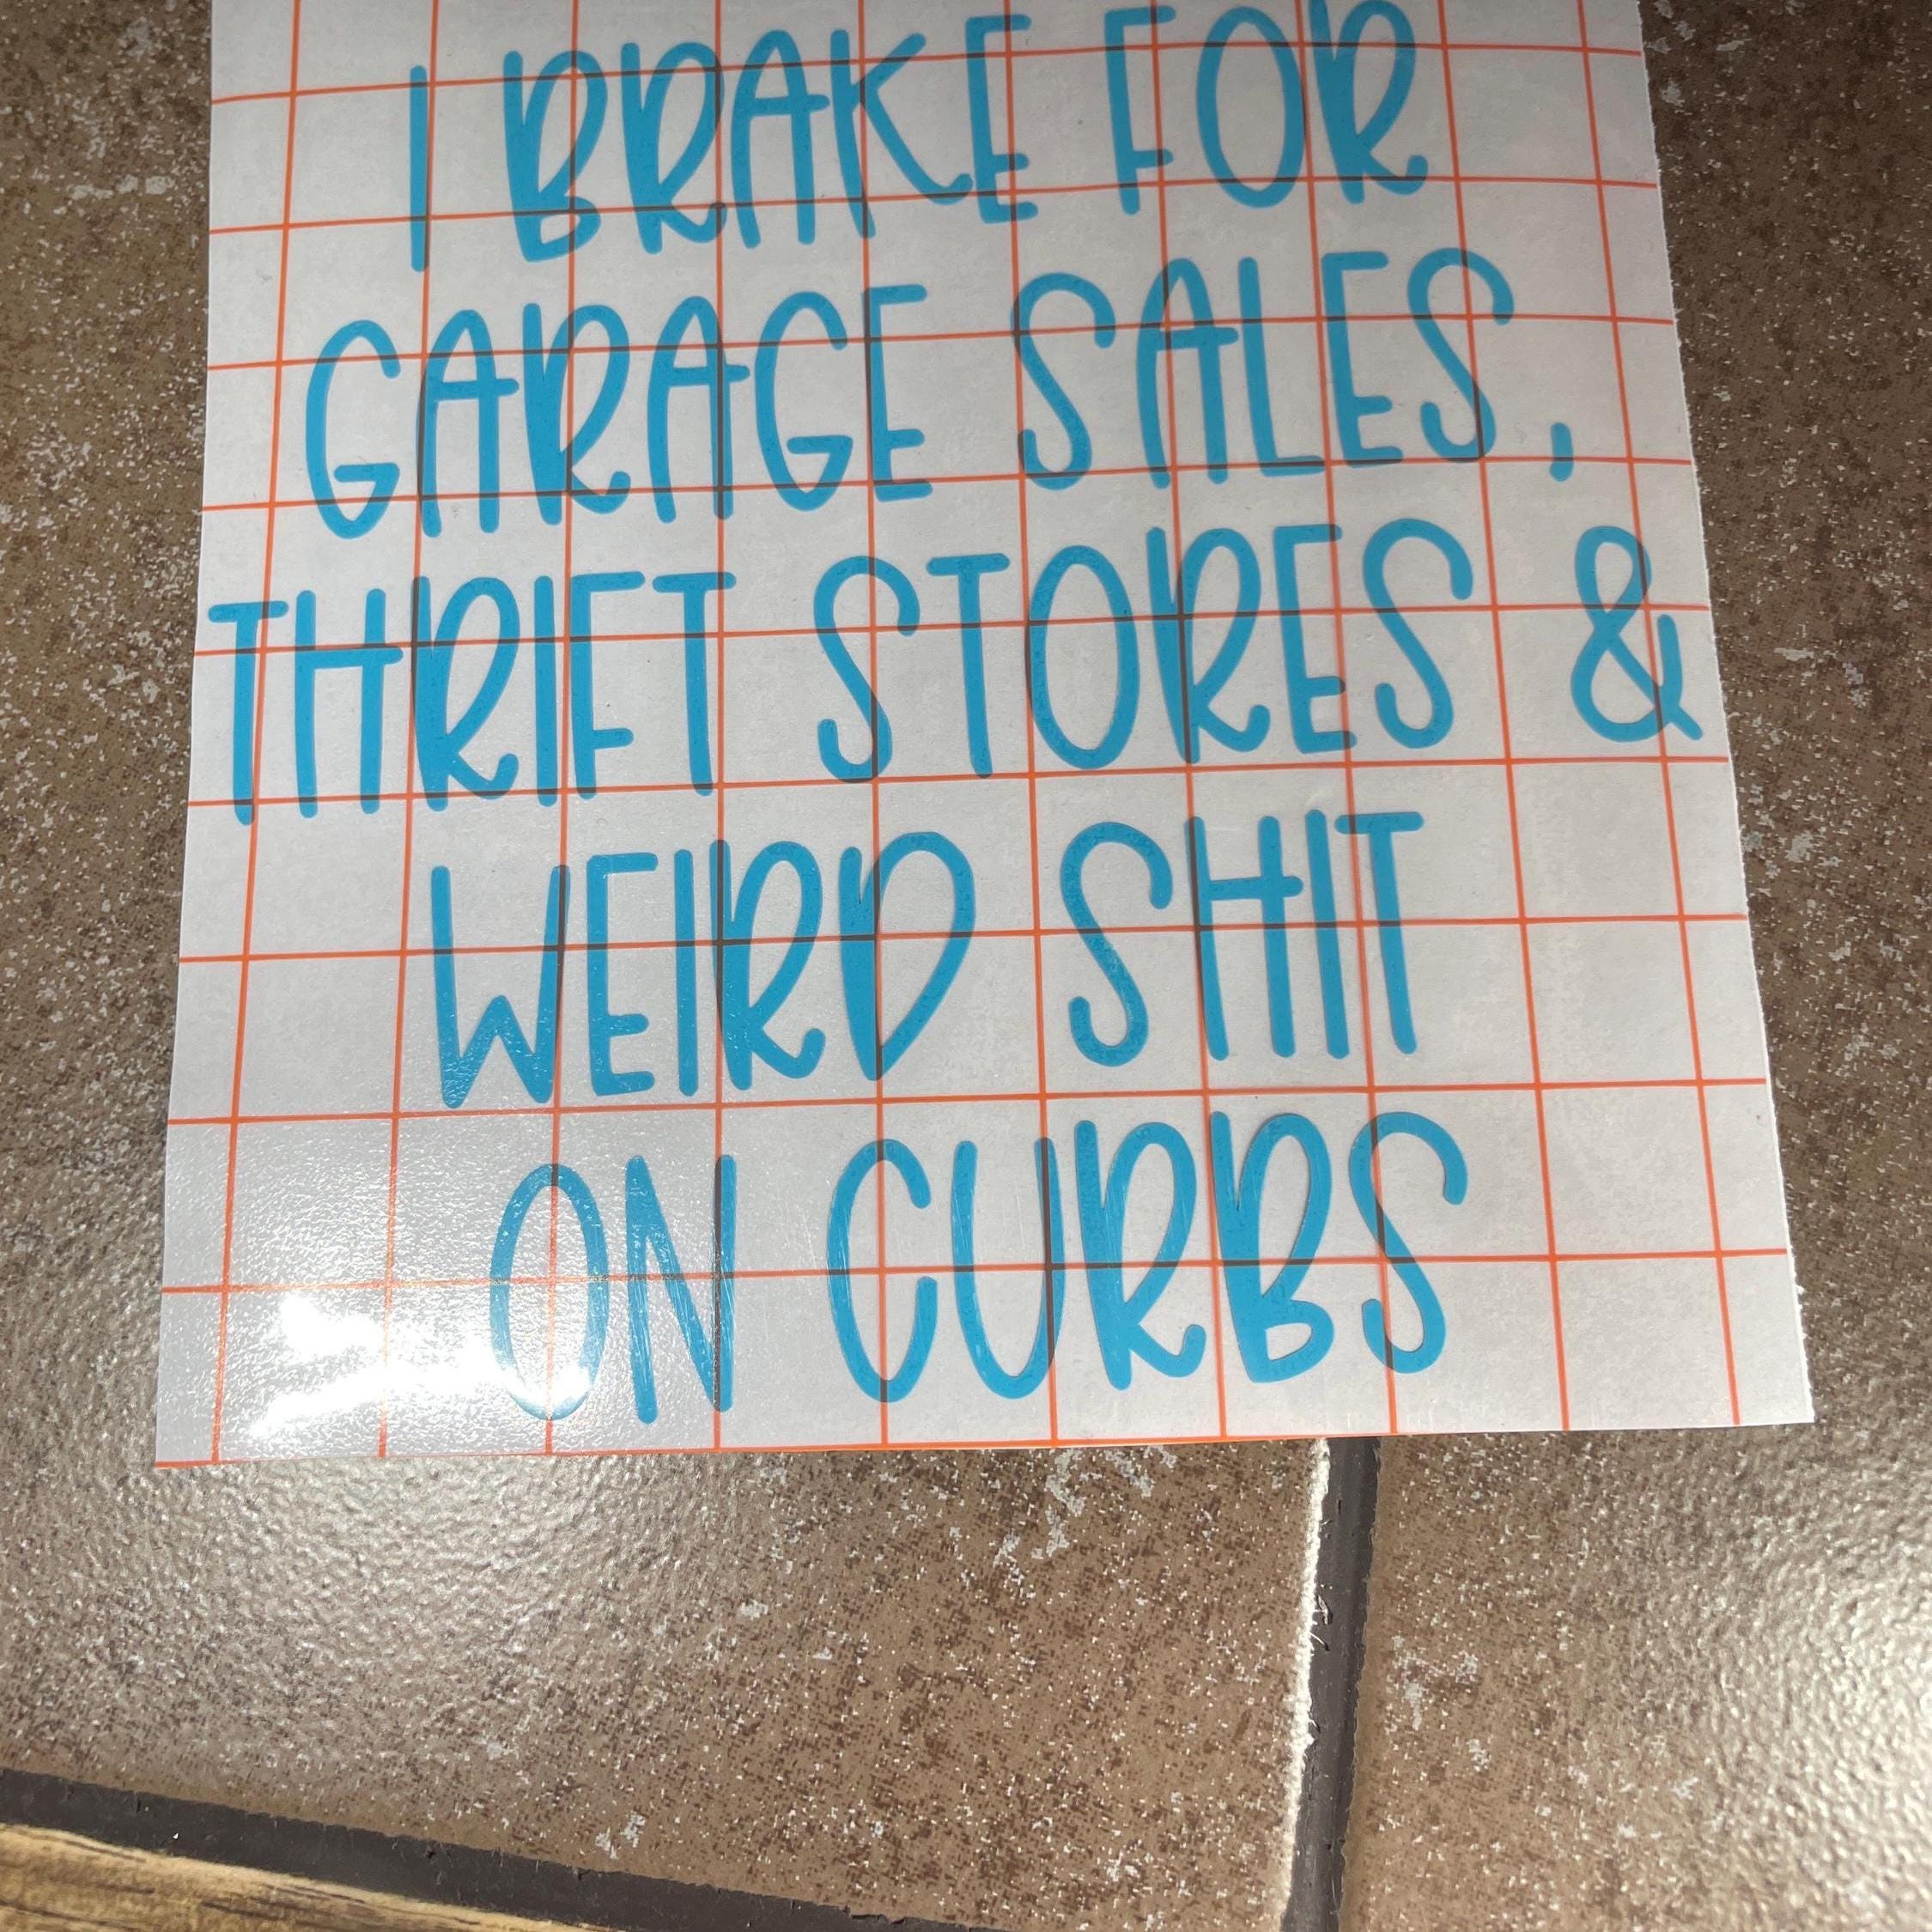 I BRAKE FOR
GARAGE SALES,
THRIFT STORES &
WEIRD SHIT
ON CURBS